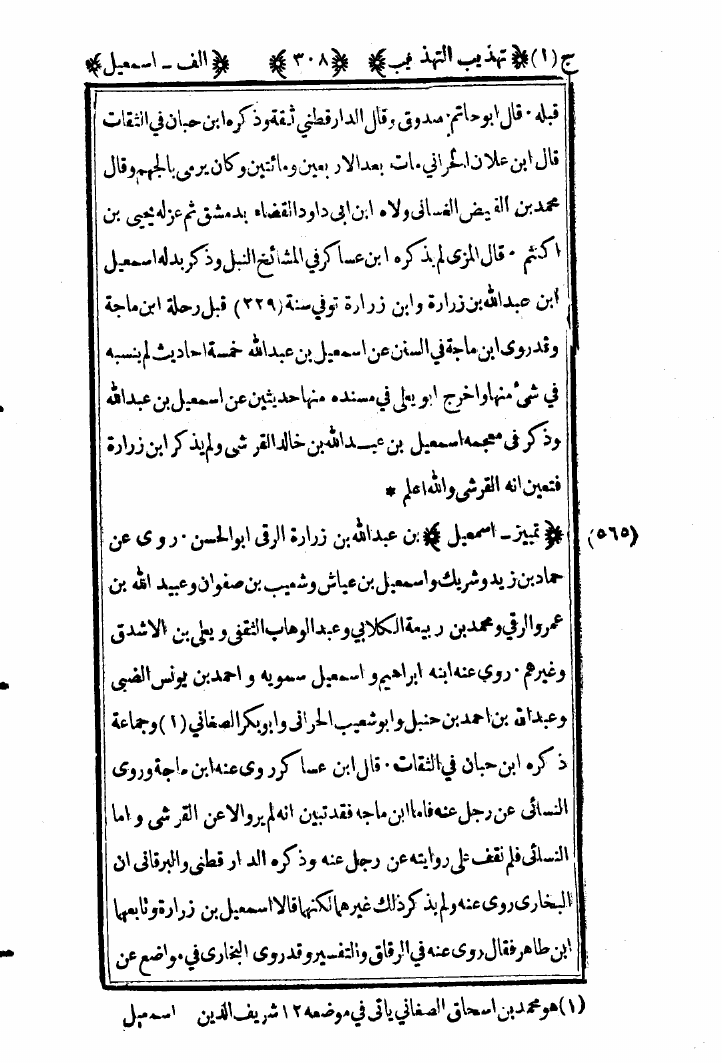 ج (١) ﴿ تهذيب التهذيب ﴾ ﴿ ٣٠٨ ﴾ ﴿ الف ـ اسمعيل ﴾
قبله ٠ قال ابو حاتم ٠ صدوق وقال الدارقطني ثقة وذكره ابن حبان في الثقات
قال ابن علان الحراني مات بعد الاربعين ومائتين وكان يرمى بالجهم وقال
محمد بن الفيض الغسانى ولاه ابن ابى داود القضاء بدمشق ثم عزله يحيى بن
اكثم ٠ قال المزى لم يذكره ابن عساكر في المشائخ النبل وذكر بدله اسمعيل
ابن عبدالله بن زرارة وابن زرارة توفي سنة (٢٢٩) قبل رحلة ابن ماجة
وقد روى ابن ماجة في السنن عن اسمعيل بن عبدالله خمسة احاديث لم ينسبه
في شئ منها واخرج ابو يعلى في مسنده منها حديثين عن اسمعيل بن عبدالله
وذكر فى معجمه اسمعيل بن عبدالله بن خالد القرشى ولم يذكر ابن زرارة
فتعين انه القرشى والله اعلم *
(٥٦٥) ﴿ تمييز ـ اسمعيل ﴾ بن عبدالله بن زرارة الرقى ابو الحسن ٠ روى عن
حماد بن زيد وشريك واسمعيل بن عياش وشعيب بن صفوان وعبيد الله بن
عمرو الرقي ومحمد بن ربيعة الكلابي وعبد الوهاب الثقفى ويعلى بن الاشدق
وغيرهم ٠ روى عنه ابنه ابراهيم و اسمعيل سمويه و احمد بن يونس الضبى
وعبدالله بن احمد بن حنبل وابو شعيب الحرانى وابو بكر الصغاني (١) وجماعة
ذكره ابن حبان في الثقات ٠ قال ابن عساكر روى عنه ابن ماجة وروى
النسائى عن رجل عنه فاما ابن ماجه فقد تبين انه لم يرو الا عن القرشى و اما
النسائى فلم نقف على روايته عن رجل عنه وذكره الدارقطنى والبرقانى ان
البخارى روى عنه ولم يذكر ذلك غيرهما لكنهما قالا اسمعيل بن زرارة وتابعهما
ابن طاهر فقال روى عنه في الرقاق والتفسير وقد روى البخارى في مواضع عن
(١) هو محمد بن اسحاق الصغاني ياتى في موضعه ١٢ شريف الدين اسمعيل